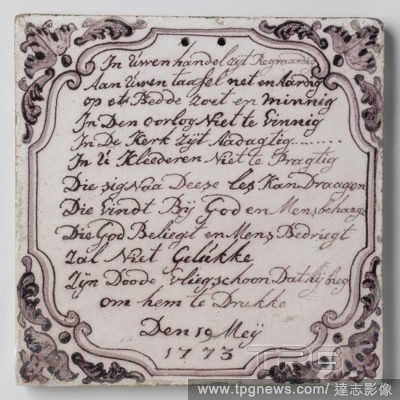 In Uwen handel zyt Regvaardig
Aan Uwen taafel net en Aardig
op et Bedde zoet en minnig
In Den oorlog Niet te Vinnig
In De Kerk Zyt Aadagtig........
In U Kleederen Niet te Pragtig
Die zig Naa Deese les Kan Draagen
Die Vindt By God en Mens behaage
Die God Beliegt en Mens Bedriegt
Zal Niet Gelukke
Zyn Doode Vlieg schoon Dat hy
om hem te Drukke
Den 19 Meÿ
1773
TPG
www.tpgnews.com / 達志影像